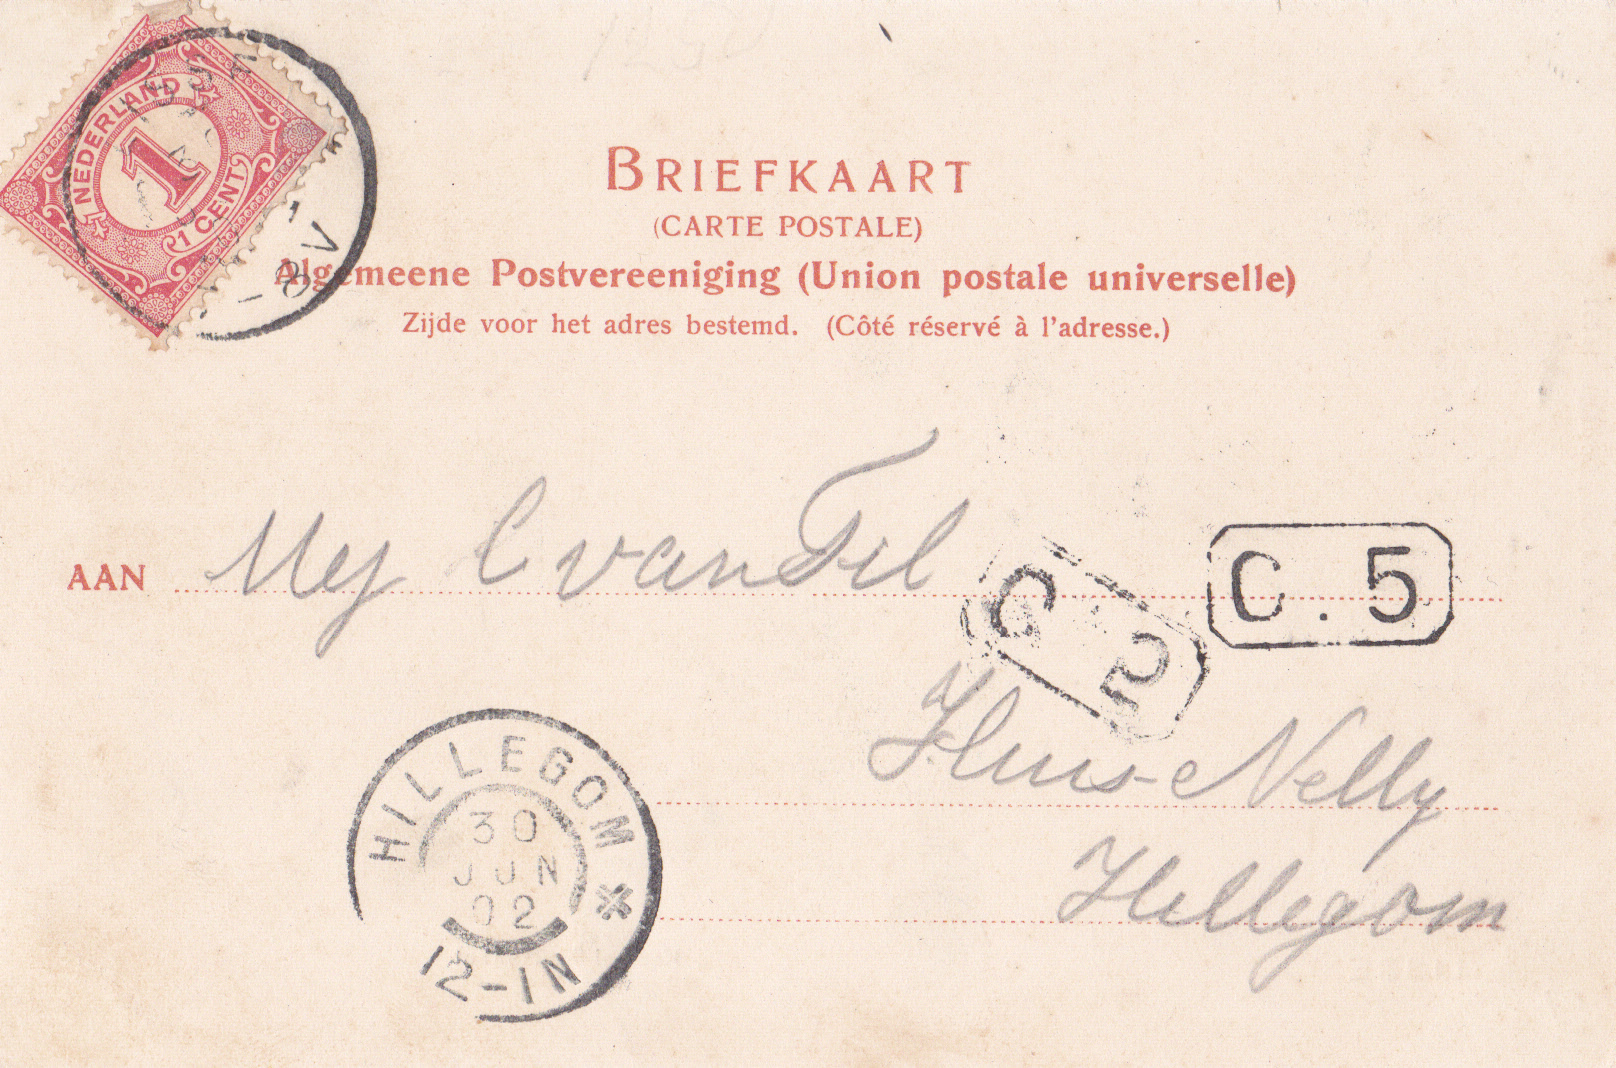 NEDERLAND
1
1 CENT
BRIEFKAART
(CARTE POSTALE)
Algemeene Postvereeniging (Union postale universelle)
Zijde voor het adres bestemd. (Côté réservé à l'adresse.)
AAN Mej C van Til
C 5
C. 5
Huis Nelly
Hillegom
HILLEGOM
30
JUN
02
12-1N
8-V